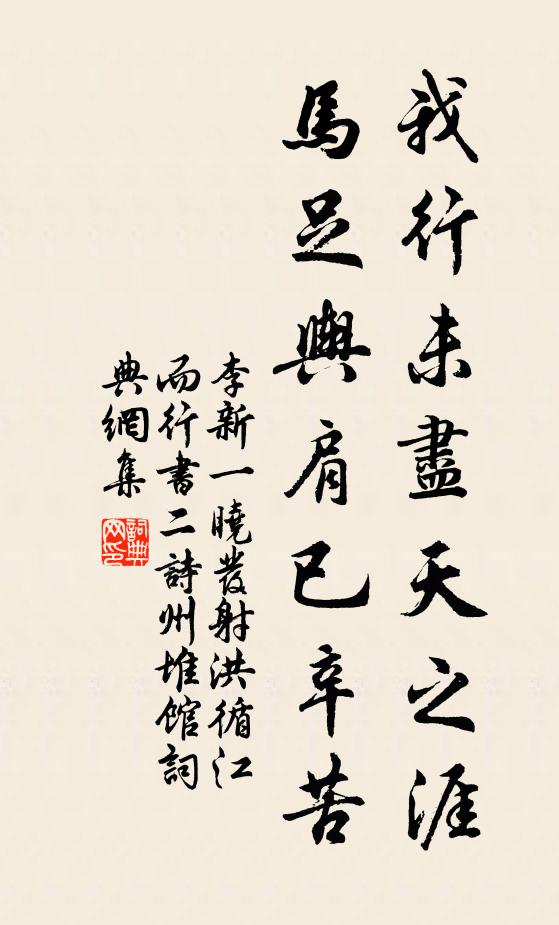 我行未盡天之涯
馬足輿肩已辛苦
李新一曉發射洪循江
而行書二詩州堆館詞
典網集
詞典网印